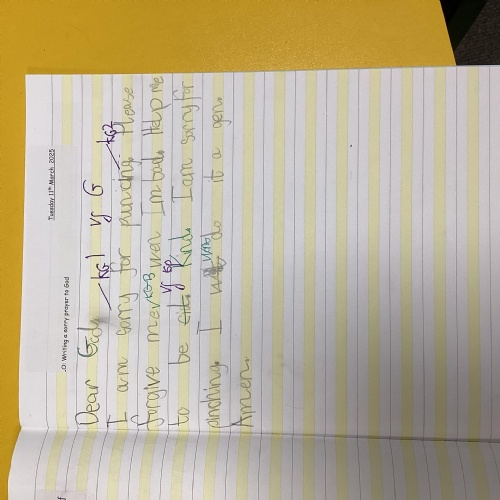 Tuesday 11th March 2025
.O: Writing a sorry prayer to God
Dear God, KG1 VS G
I am sorry for punching. Please KG2
forgive me KG3 wen I'm bad. Help me
to be kind. I am sorry for
pinching. I do it a gen.
Amen.